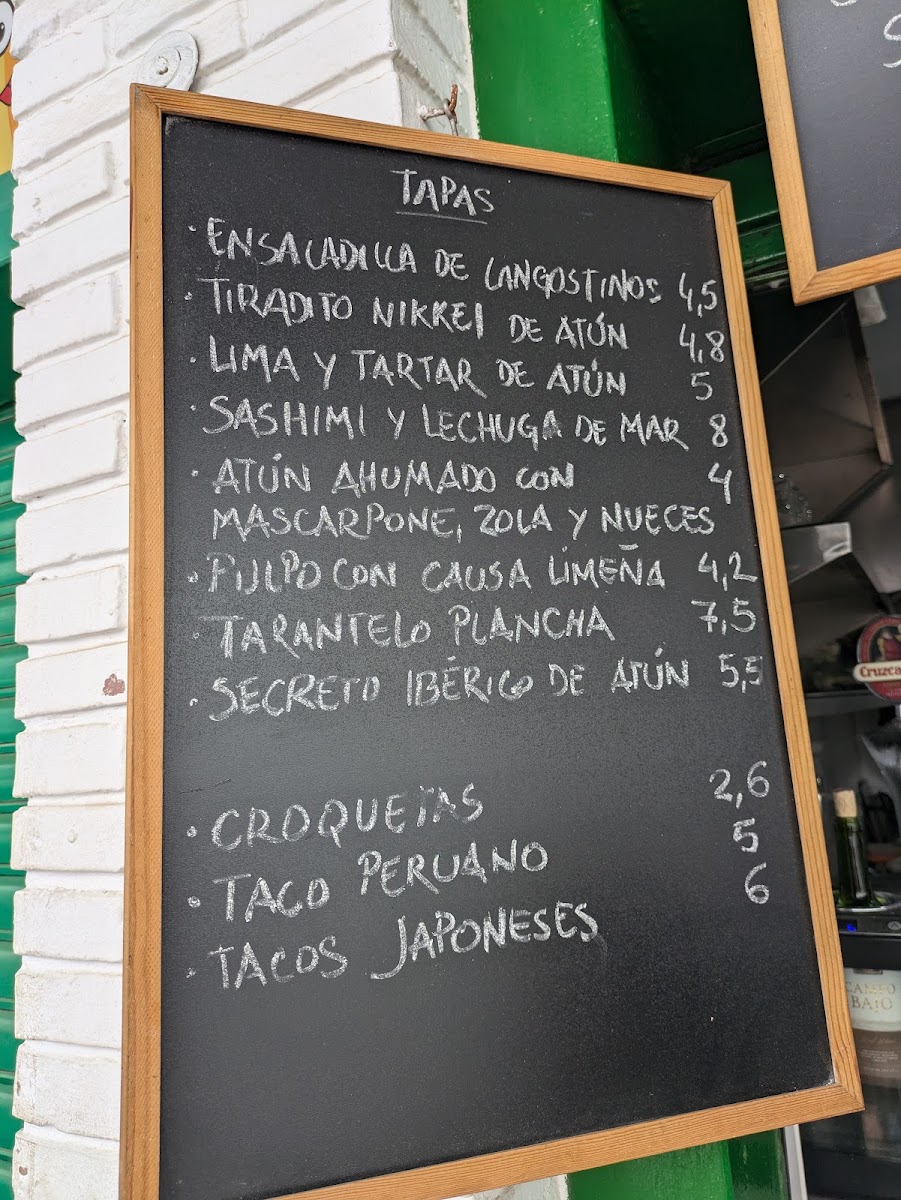 TAPAS
· ENSALADILLA DE LANGOSTINOS 4,5
· TIRADITO NIKKEI DE ATÚN 4,8
· LIMA Y TARTAR DE ATÚN 5
· SASHIMI Y LECHUGA DE MAR 8
· ATÚN AHUMADO CON 4
MASCARPONE, ZOLA Y NUECES
· PULPO CON CAUSA LIMEÑA 4,2
· TARANTELO PLANCHA 7,5
· SECRETO IBÉRICO DE ATÚN 5,5
· CROQUETAS 2,6
· TACO PERUANO 5
· TACOS JAPONESES 6
Cruzca
CAMPO
BAJO